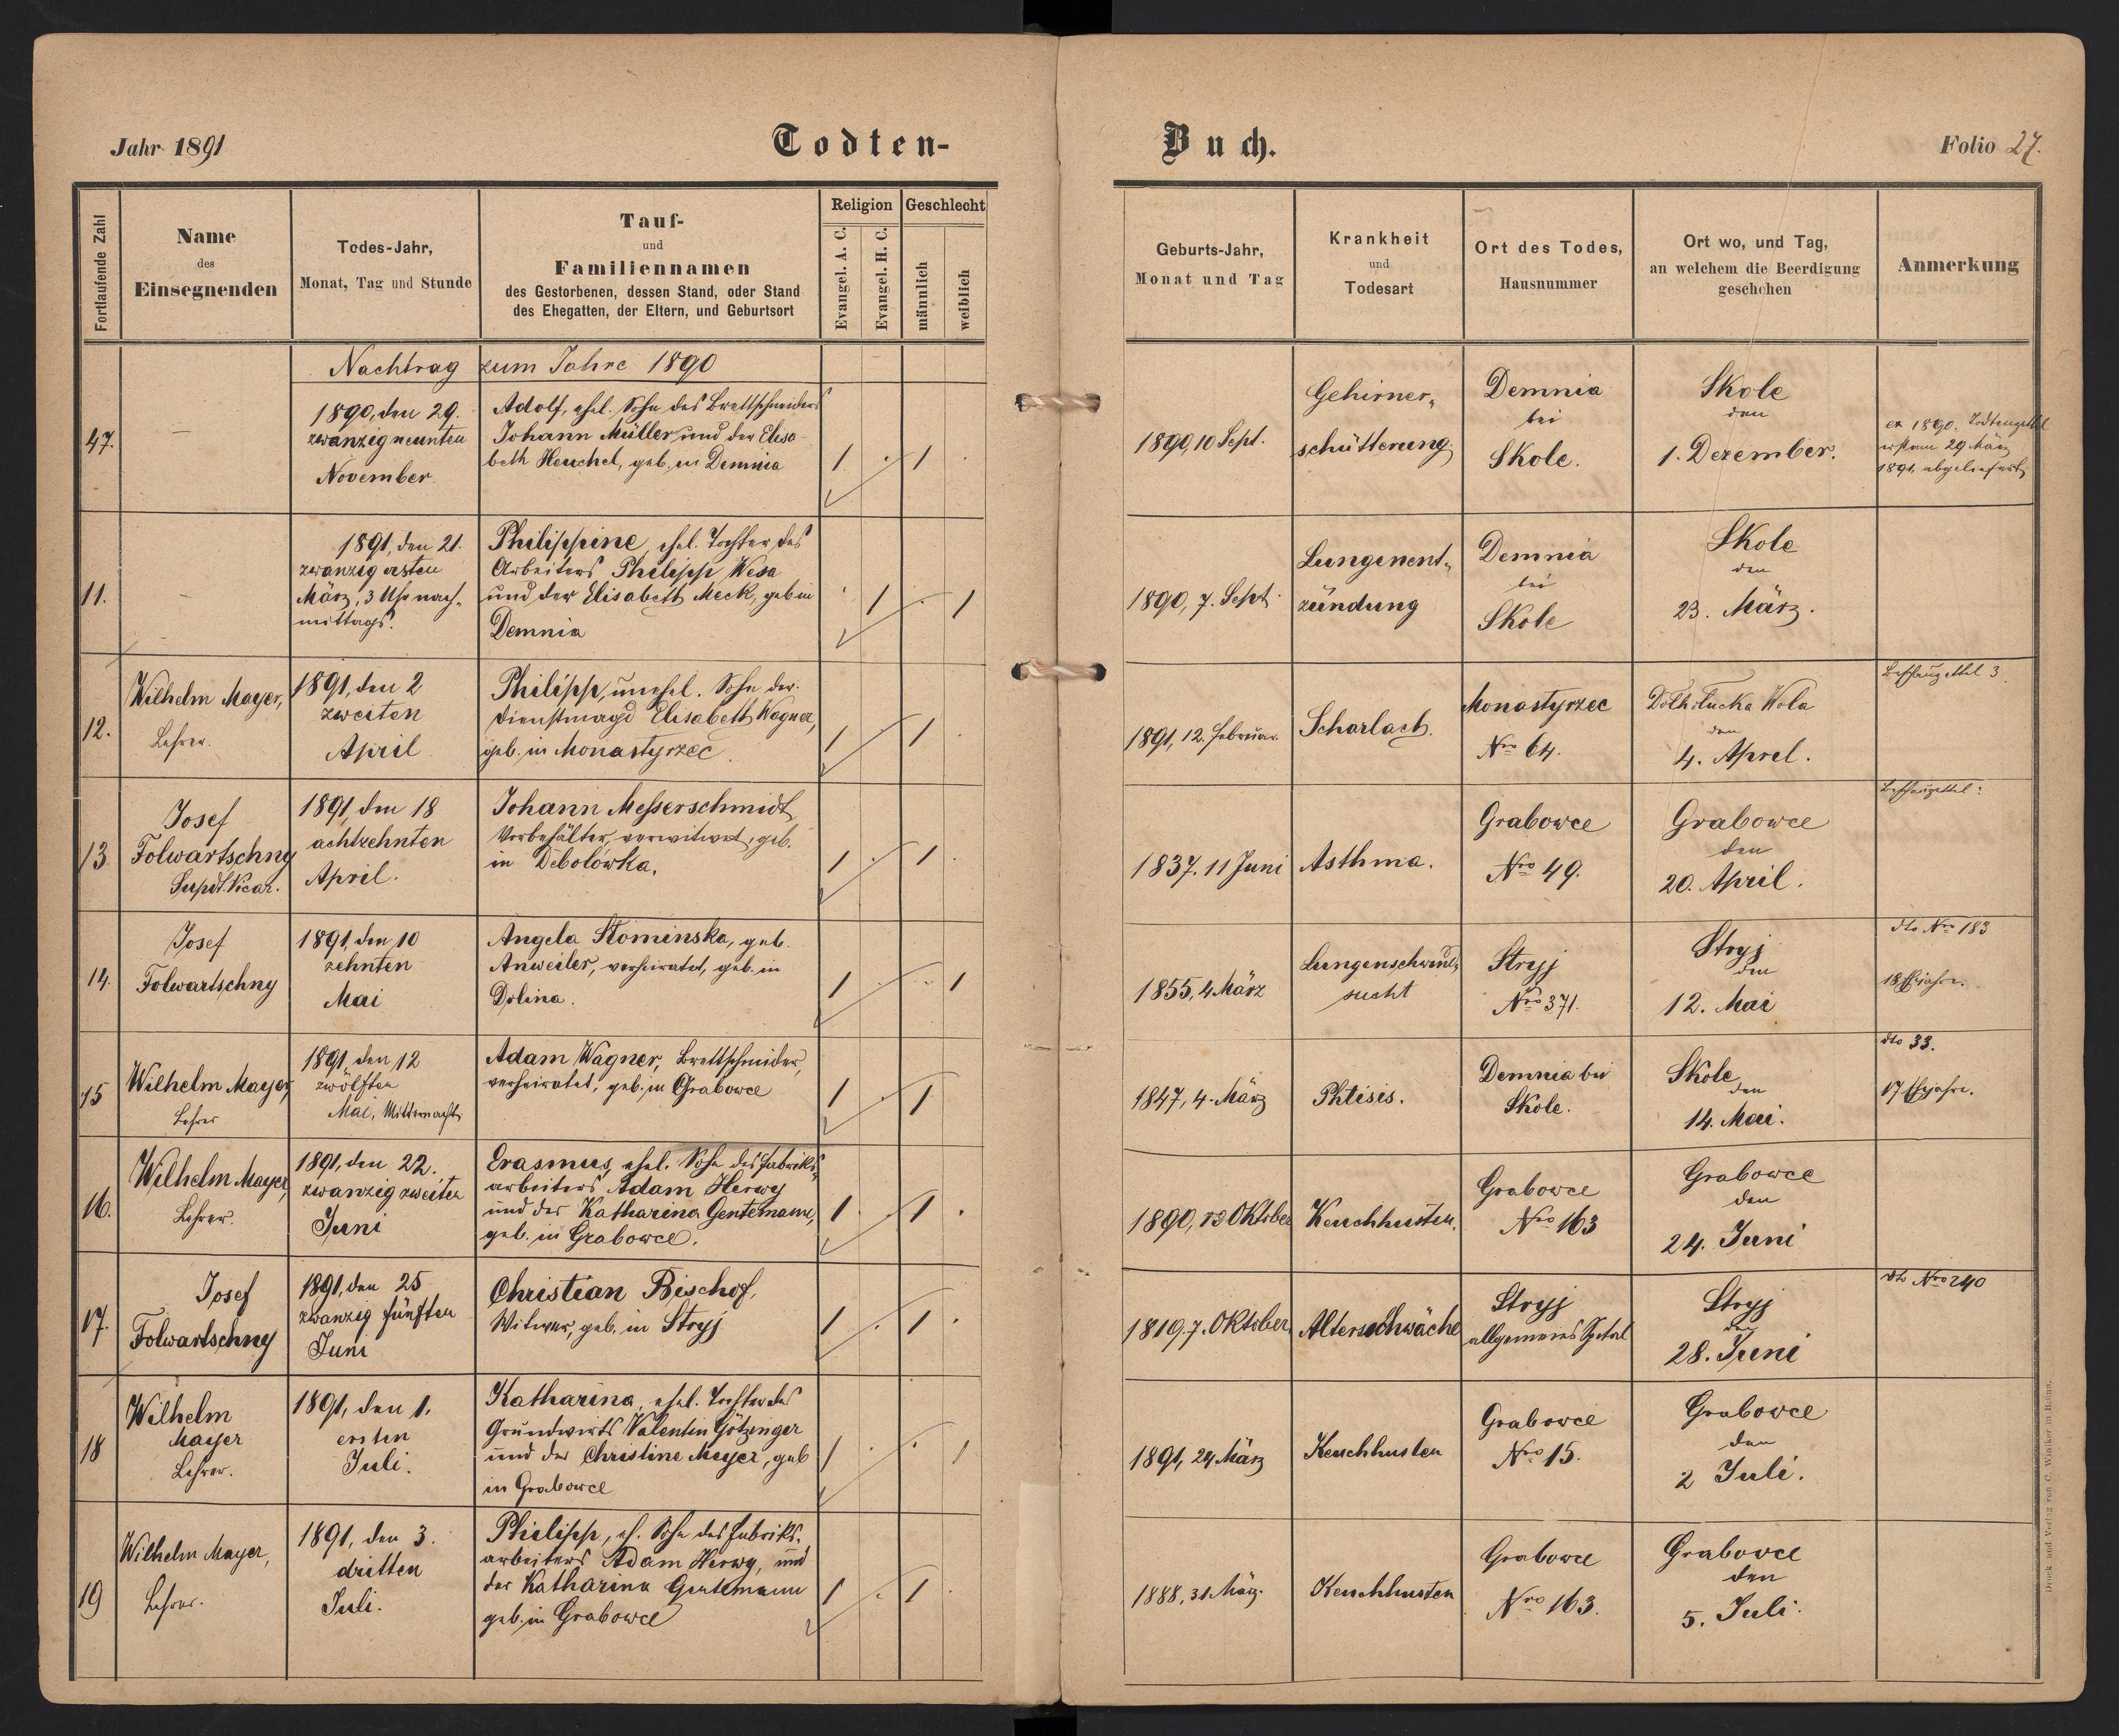 Jahr 1891
Todten-
Buch.
Folio 27.
Fortlaufende Zahl
Name
des
Einsegnenden
Todes-Jahr,
Monat, Tag und Stunde
Tauf-
und
Familiennamen
des Gestorbenen, dessen Stand, oder Stand
des Ehegatten, der Eltern, und Geburtsort
Religion
Evangel. A. C.
Evangel. H. C.
Geschlecht
männlich
weiblich
Geburts-Jahr,
Monat und Tag
Krankheit
und
Todesart
Ort des Todes,
Hausnummer
Ort wo, und Tag,
an welchem die Beerdigung
geschehen
Anmerkung
Nachtrag zum Jahre 1890
47.
—
1890, den 29.
zwanzigneunten
November.
Adolf, ehel. Sohn des Brettschneiders
Johann Müller und der Elisa-
beth Heuchel, geb. in Demnia
1 . 1 .
1890, 10 Sept.
Gehirner-
schütterung.
Demnia
bei
Skole.
Skole
den
1. Dezember.
ex 1890. Todtenzettel
erst am 29 März
1891, abgeliefert.
11.
—
1891, den 21.
zwanzigersten
März, 3 Uhr nach-
mittags.
Philippine, ehel. Tochter des
Arbeiters Philipp Wesa
und der Elisabeth Meck, geb in
Demnia
. 1 . 1
1890, 7. Sept.
Lungenent-
zündung
Demnia
bei
Skole
Skole
den
23. März.
12.
Wilhelm Mayer,
Lehrer.
1891, den 2
zweiten
April
Philipp, unehel. Sohn der
Dienstmagd Elisabeth Wagner,
geb. in Monastyrzec.
1 . 1 .
1891, 12. Februar.
Scharlach.
Monastyrzec
Nro 64.
Wola
den
4. April.
Beschauzettel 3.
13.
Josef
Folwartschny
Supdt. Vicar.
1891, den 18
achtzehnten
April.
Johann Messerschmidt,
Vorbehälter, verwitwet, geb.
in Debolówka.
1 . 1 .
1837. 11 Juni
Asthma.
Grabowce
Nro 49.
Grabowce
den
20. April.
Beschauzettel:
14.
Josef
Folwartschny
1891, den 10
zehnten
Mai
Angela Słominska, geb.
Anweiler, verheiratet, geb. in
Dolina.
1 . . 1
1855, 4 März
Lungenschwind-
sucht
Stryj
Nro 371.
Stryj
den
12. Mai
dto Nro 183
18 Ehejahre.
15
Wilhelm Mayer,
Lehrer
1891, den 12
zwölften
Mai, Mitternacht.
Adam Wagner, Brettschneider,
verheiratet, geb. in Grabowce
1 . 1
1847, 4. März
Phtisis.
Demnia bei
Skole.
Skole
den
14. Mai.
dto 33.
17 Ehejahre.
16.
Wilhelm Mayer,
Lehrer.
1891, den 22.
zwanzigzweiten
Juni
Erasmus, ehel. Sohn des Fabriks-
arbeiters Adam Herwy
und der Katharina Gentemann,
geb. in Grabowce.
1 . 1 .
1890, 13 Oktober
Keuchhusten.
Grabowce
Nro 163
Grabowce
den
24. Juni
17.
Josef
Folwartschny
1891, den 25
zwanzig fünften
Juni
Christian Bischof,
Witwer, geb. in Stryj
1 . 1 .
1819. 7. Oktober
Altersschwäche
Stryj
allgemeines Spital
Stryj
den
28. Juni
dto Nro 240
18
Wilhelm
Mayer
Lehrer.
1891, den 1.
ersten
Juli.
Katharina, ehel. Tochter des
Grundwirts Valentin Götzinger
und der Christine Meyer, geb
in Grabowce
1 . . 1
1891, 24 März
Keuchhusten
Grabowce
Nro 15.
Grabowce
den
2 Juli.
19
Wilhelm Mayer,
Lehrer.
1891, den 3.
dritten
Juli.
Philipp, eh. Sohn des Fabriks-
arbeiters Adam Herwy, und
der Katharina Gentemann
geb. in Grabowce
1 . 1 .
1888, 31. März.
Keuchhusten
Grabowce
Nro 163.
Grabowce
den
5. Juli.
Druck und Verlag von C. Winiker in Brünn.